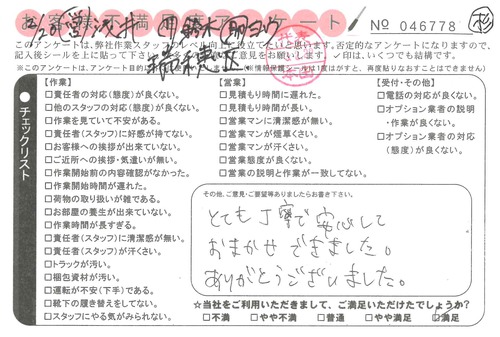 お客様不満足アンケート
No 046778 杉
12/20 営 浅井 鈴木
このアンケートは、弊社作業スタッフのレベル向上に役立てたいと思います。否定的なアンケートになりますので、
記入後シールを上に貼って下さい。 意見をお願いします ✓印は、いくつでも結構です。
チェックリスト
【作業】
□責任者の対応(態度)が良くない。
□他のスタッフの対応(態度)が良くない。
□作業を見ていて不安がある。
□責任者(スタッフ)に好感が持てない。
□お客様への挨拶が出来ていない。
□ご近所への挨拶・気遣いが無い。
□作業開始前の内容確認がなかった。
□作業開始時間が遅れた。
□荷物の取り扱いが雑である。
□お部屋の養生が出来ていない。
□作業時間が長すぎる。
□責任者(スタッフ)に清潔感が無い。
□責任者(スタッフ)が汗くさい。
□トラックが汚い。
□梱包資材が汚い。
□運転が不安(下手)である。
□靴下の履き替えをしてない。
□スタッフにやる気がみられない。
【営業】
□見積もり時間に遅れた。
□見積もり時間が長い。
□営業マンに清潔感が無い。
□営業マンが煙草くさい。
□営業マンが汗くさい。
□営業態度が良くない。
□営業の説明と作業が一致してない。
【受付・その他】
□電話の対応が良くない。
□オプション業者の説明
・作業が良くない。
□オプション業者の対応
(態度)が良くない。
その他、ご意見・ご要望等ありましたらお書き下さい。
とても丁寧で安心して
おまかせできました。
ありがとうございました。
☆当社をご利用いただきまして、ご満足いただけたでしょうか?
□不満 □やや不満 □普通 □やや満足 □満足